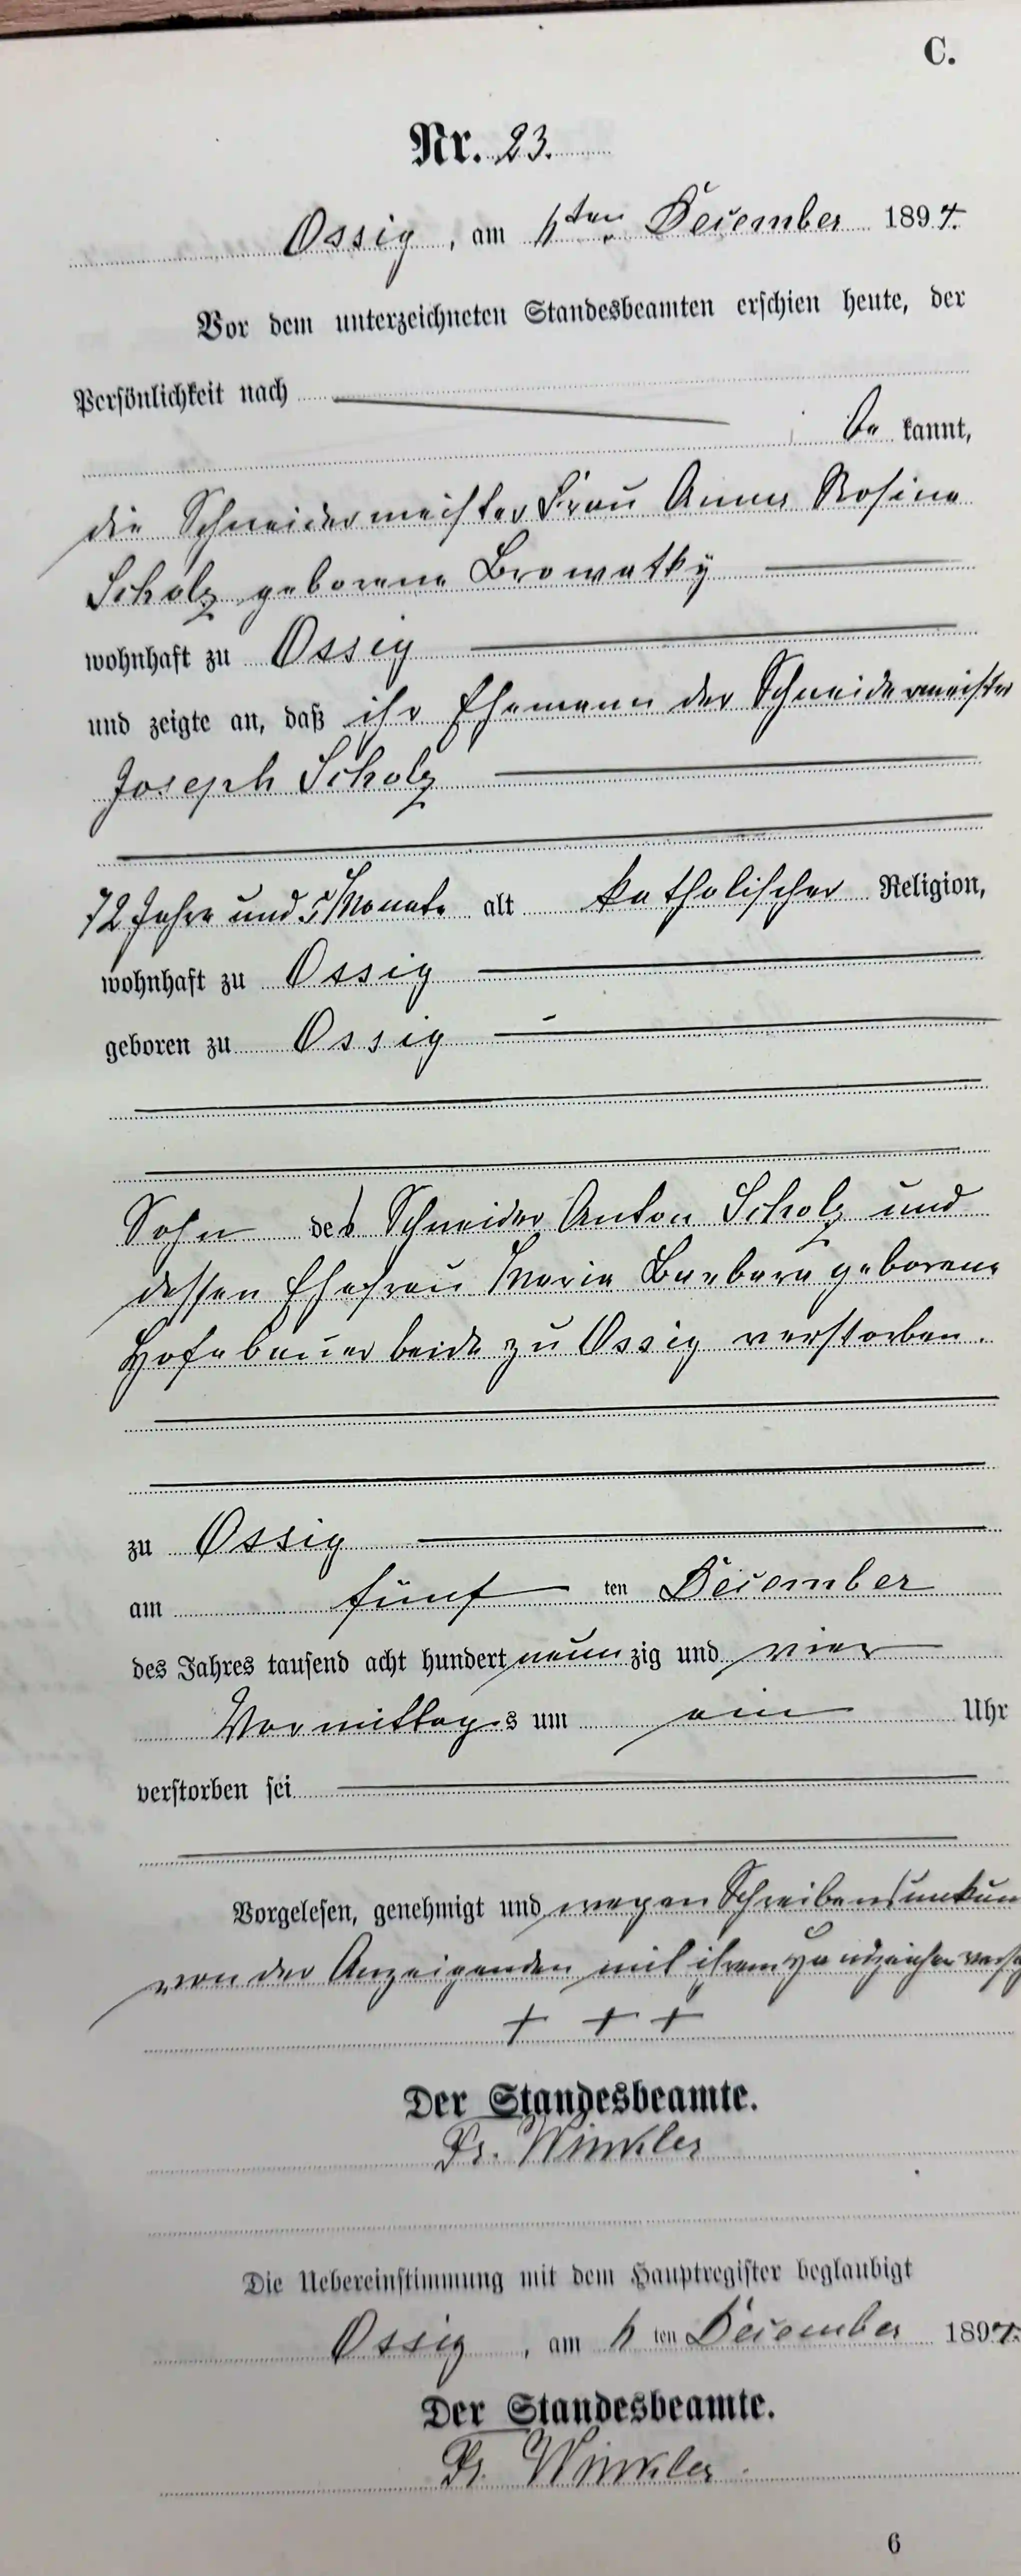 C.
Nr. 23.
Ossig, am 6ten December 1894.
Vor dem unterzeichneten Standesbeamten erschien heute, der
Persönlichkeit nach
be kannt,
die Schneidermeister Frau Anna Rosina
Scholz geborene Browatky
wohnhaft zu Ossig
und zeigte an, daß ihr Ehemann der Schneidermeister
Joseph Scholz
72 Jahre und 5 Monate alt katholischer Religion,
wohnhaft zu Ossig
geboren zu Ossig
Sohn des Schneider Anton Scholz und
dessen Ehefrau Maria Barbara geborene
Hofebauer beide zu Ossig verstorben.
zu Ossig
am fünf ten December
des Jahres tausend acht hundert neun zig und vier
Vormittags um ein Uhr
verstorben sei
Vorgelesen, genehmigt und wegen Schreibensunkun
von der Anzeigenden mit ihrem Handzeichen verse
+ + +
Der Standesbeamte.
Fr. Winkler
Die Uebereinstimmung mit dem Hauptregister beglaubigt
Ossig, am 6 ten December 1894.
Der Standesbeamte.
Fr. Winkler.
6